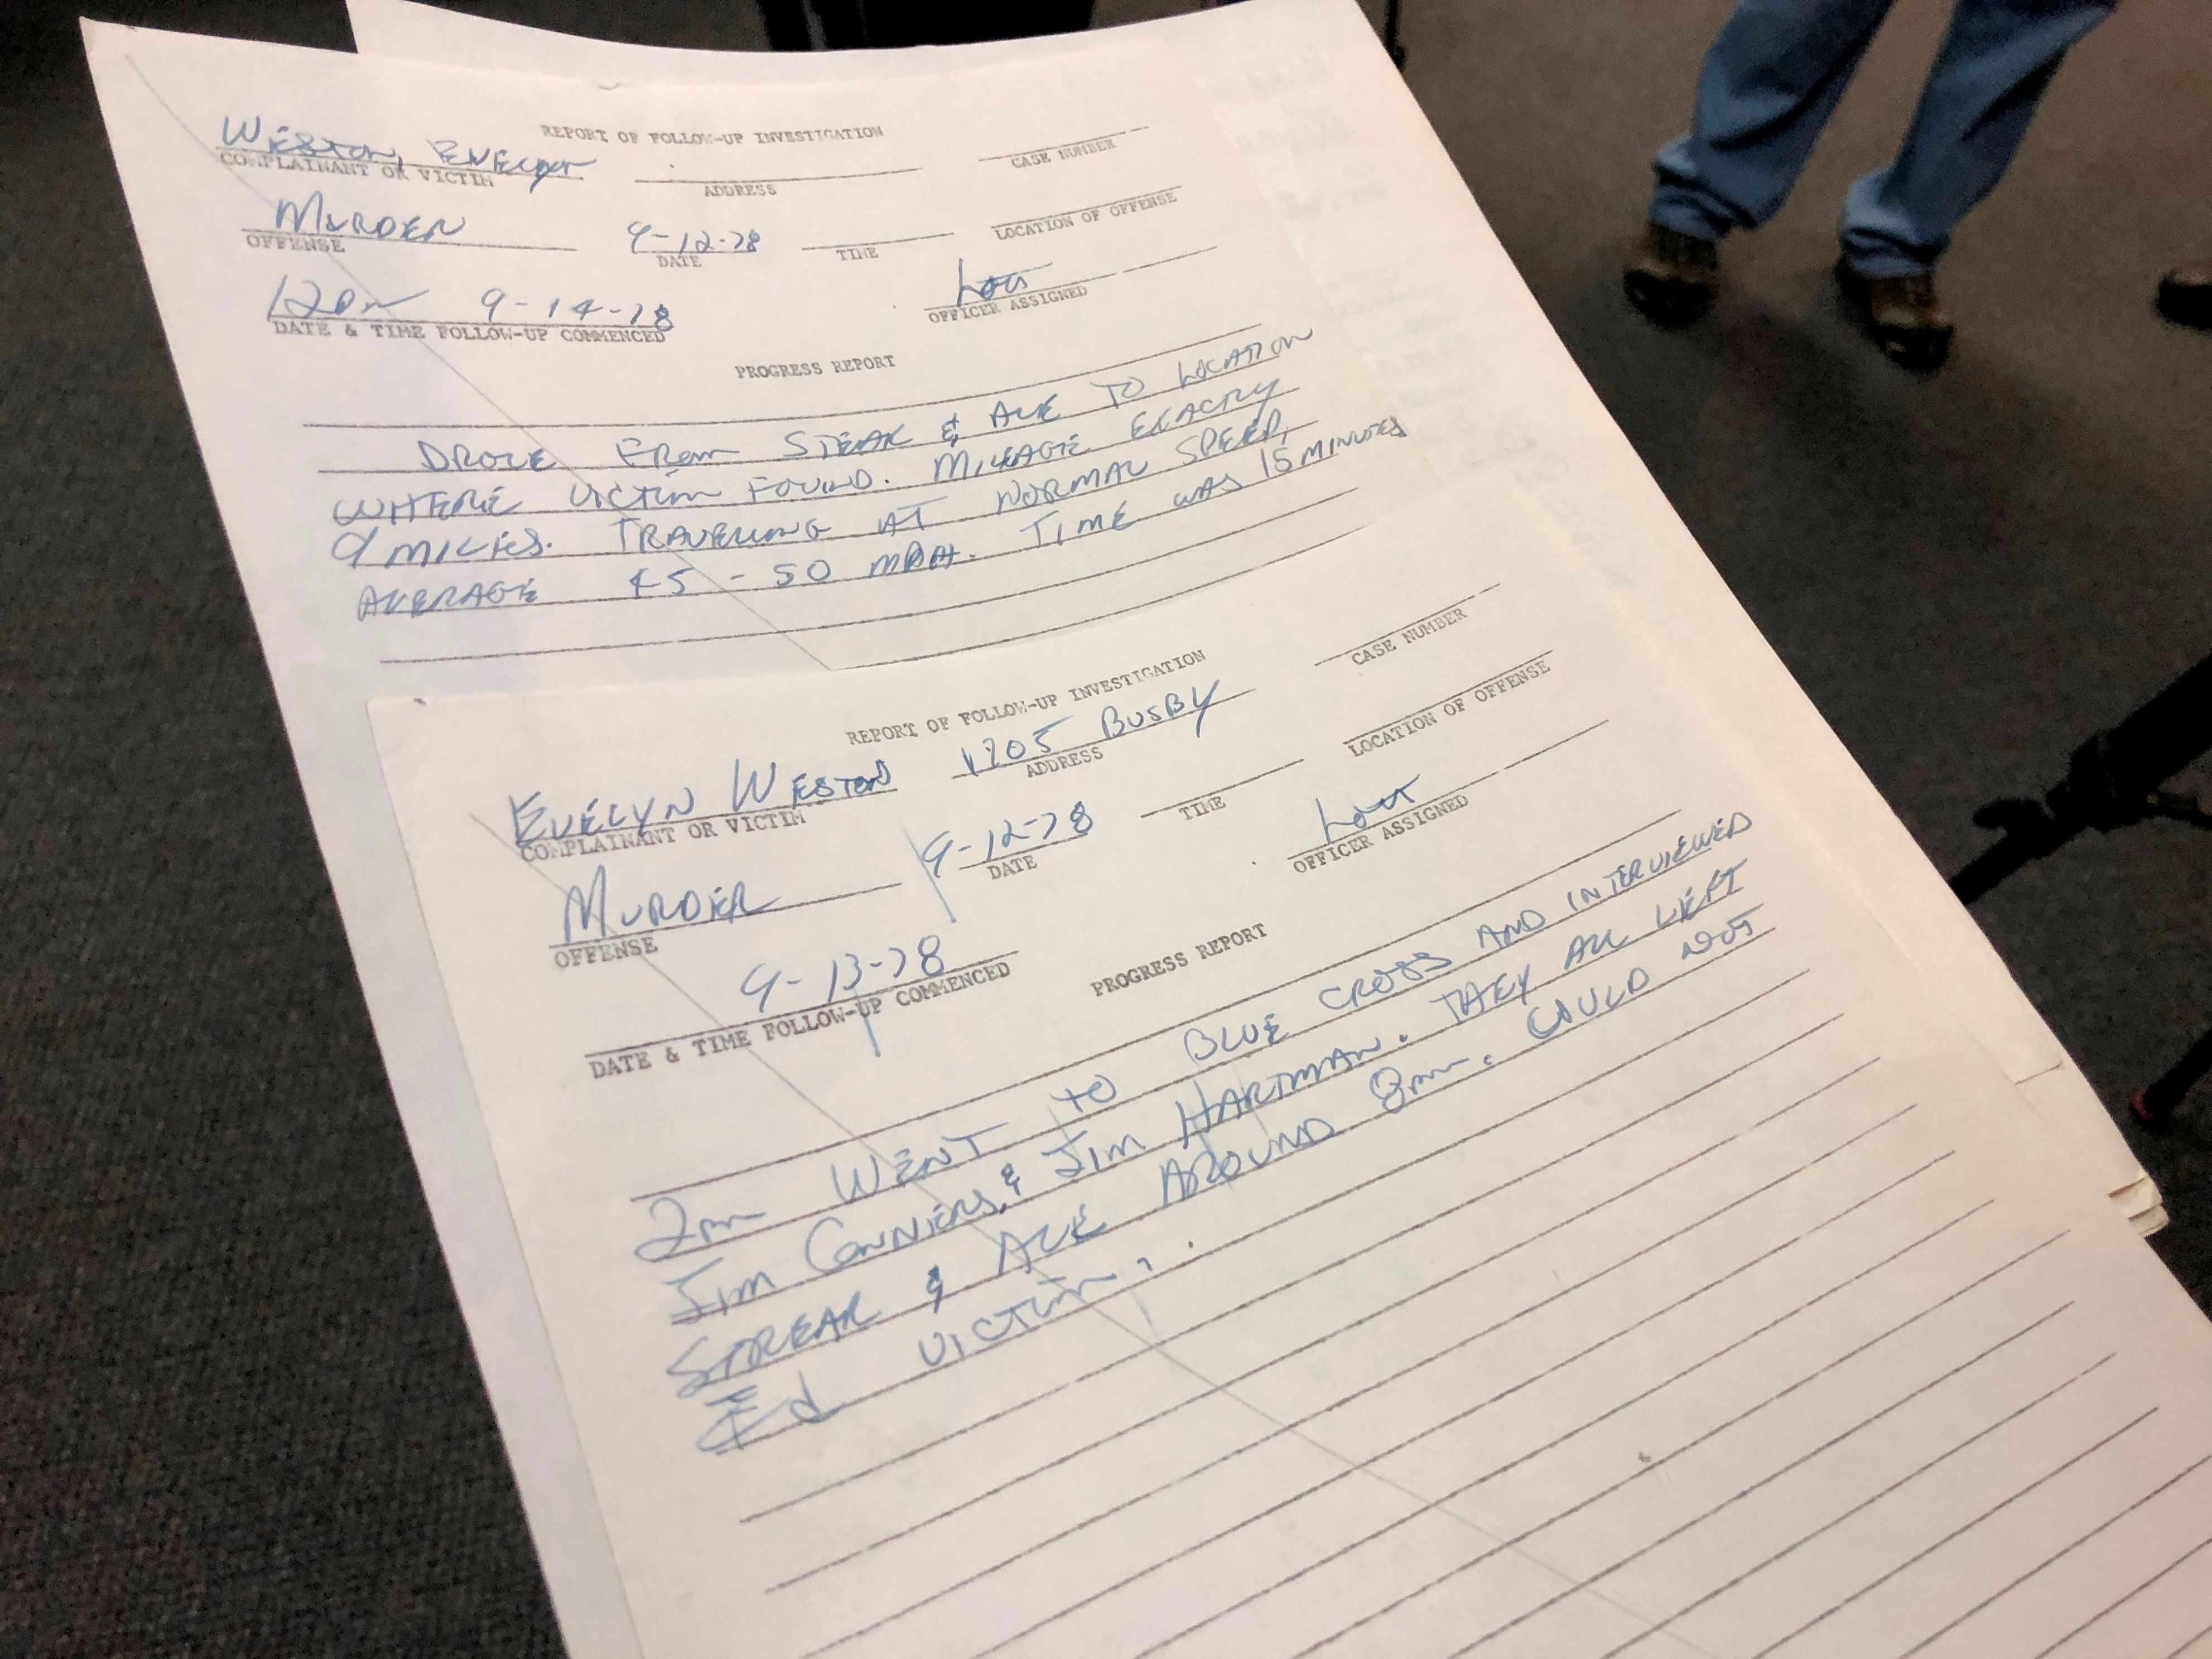 REPORT OF FOLLOW-UP INVESTIGATION
WESTON, EVELYN
COMPLAINANT OR VICTIM
ADDRESS
CASE NUMBER
MURDER
OFFENSE
9-12-78
DATE
TIME
LOCATION OF OFFENSE
12pm 9-14-78
DATE & TIME FOLLOW-UP COMMENCED
Lott
OFFICER ASSIGNED
PROGRESS REPORT
DROVE FROM STEAK & ALE TO LOCATION
WHERE VICTIM FOUND. MILEAGE EXACTLY
9 MILES. TRAVELING AT NORMAL SPEED,
AVERAGE 45-50 MPH. TIME WAS 15 MINUTES
REPORT OF FOLLOW-UP INVESTIGATION
EVELYN WESTON
COMPLAINANT OR VICTIM
BUSBY
ADDRESS
CASE NUMBER
MURDER
OFFENSE
9-12-78
DATE
TIME
LOCATION OF OFFENSE
9-13-78
DATE & TIME FOLLOW-UP COMMENCED
Lott
OFFICER ASSIGNED
PROGRESS REPORT
2pm WENT TO BLUE CROSS AND INTERVIEWED
JIM CONNIERS, & JIM HARTMAN. THEY ALL LEFT
STREAK & ALE AROUND 8pm. COULD NOT
VICTIM.